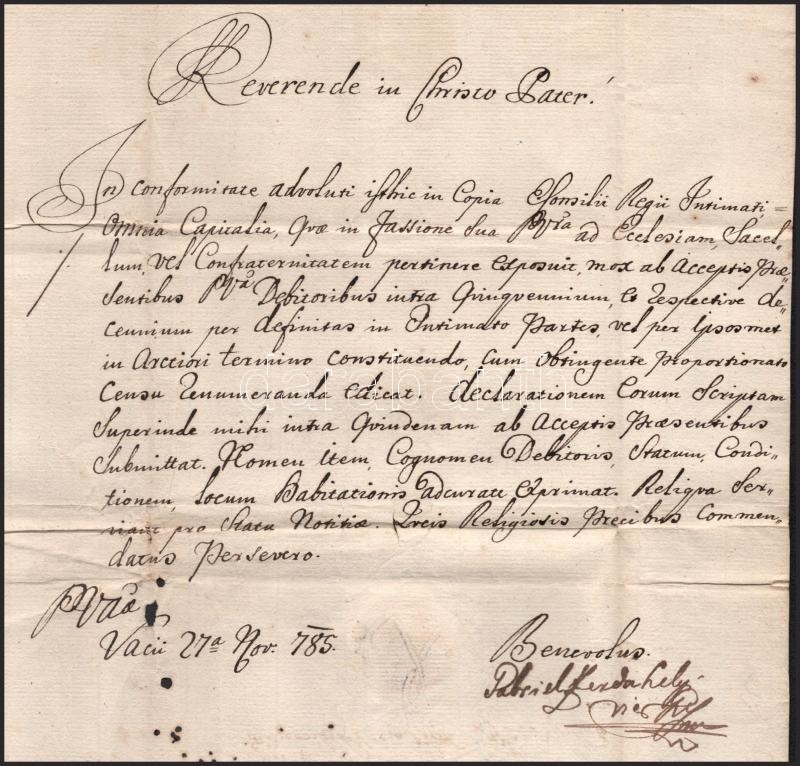 Reverende in Christo Pater!
In conformitate advoluti isthic in Copia Consilii Regii Intimati,
Omnia Capitalia, Quæ in Fassione Sua PVrã ad Ecclesiam, Sacel=
lum, vel Confraternitatem pertinere exposuit, mox ab Acceptis Præ=
sentibus PVrã Debitoribus intra Quinquennium, et respective de=
cennium per definitas in Intimato Partes, vel per Ipsosmet
in Arctiori termino constituendo, cum obtingente proportionato
Censu renumeranda edicat. Declarationem Eorum Scriptam
Superinde mihi intra Quindenam ab Acceptis Præsentibus
Submittat. Nomen item, Cognomen Debitoris, Statum, Condi=
tionem, locum Habitationis adcurate exprimat. Reliqua Ser=
viant pro Statu Notitiæ. Preis Religiosis Precibus Commen=
datus Persevero.
PVræ
Vacii 27ª Nov. 785.
Benevolus.
Gabriel Kerdahely
Vic
darabanth